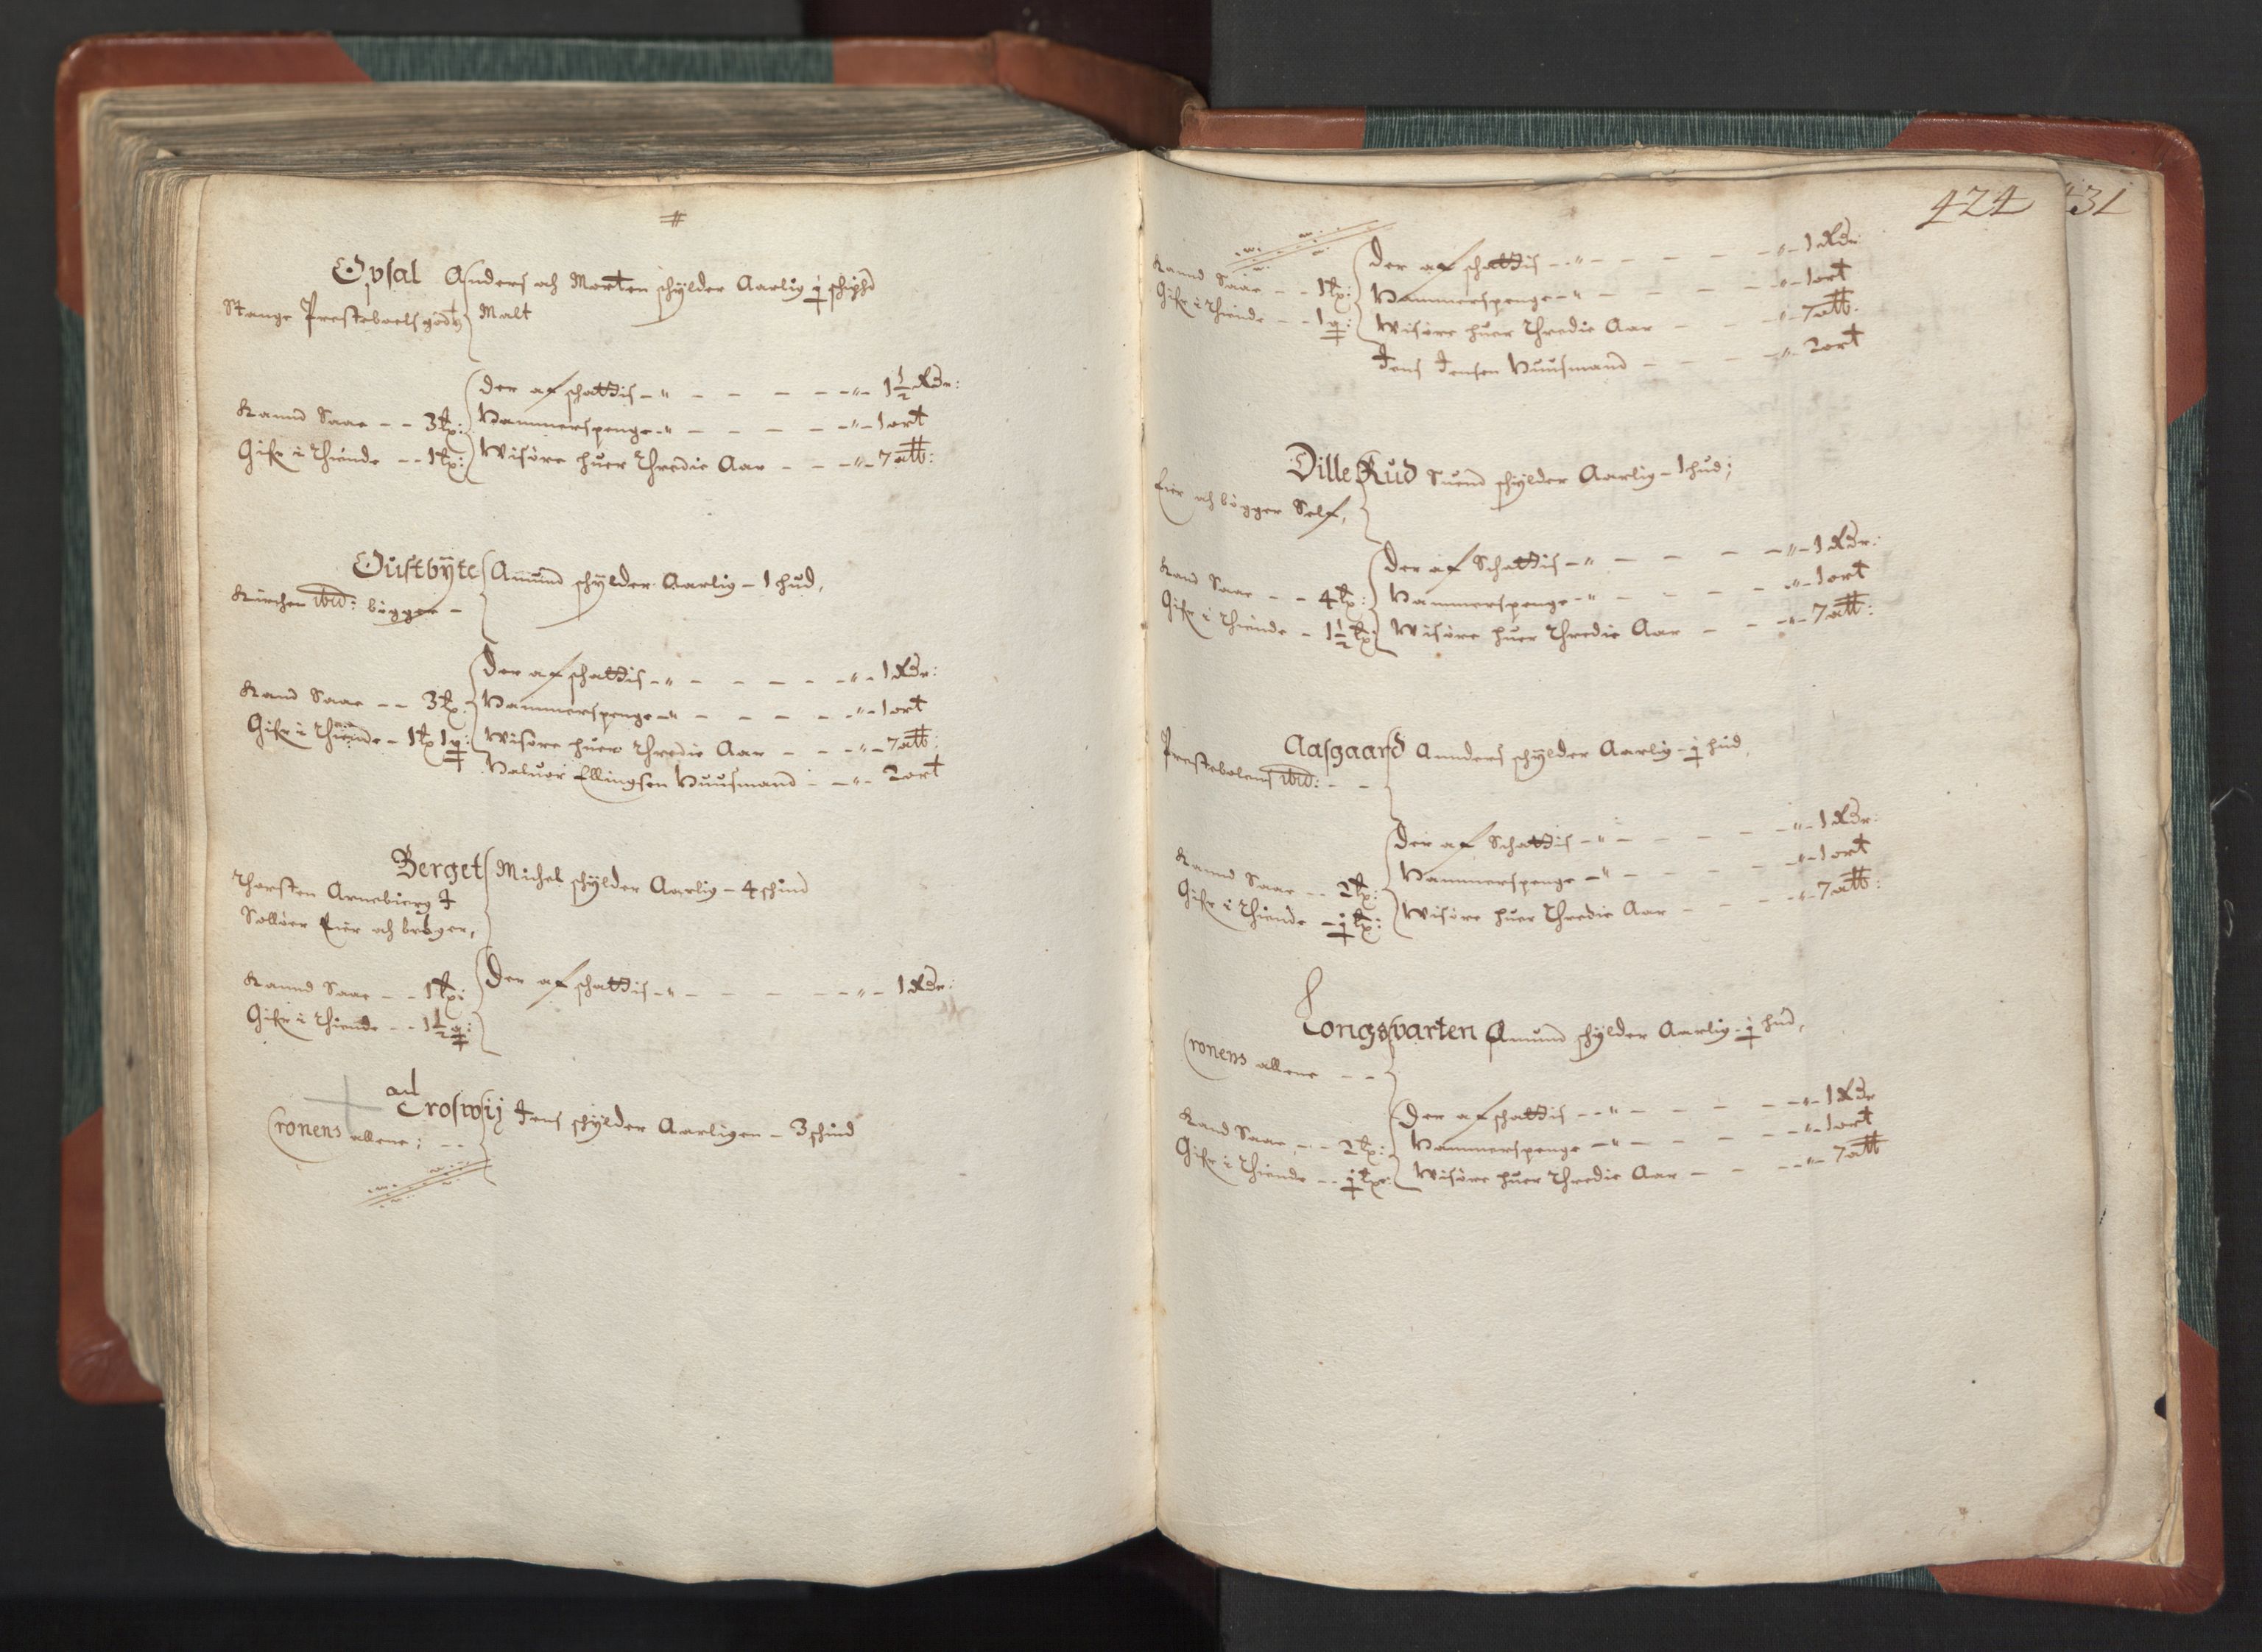 #
Opsal Anders och Morten schylder Aarlig ½ schipd
Stange Presteboels godtz Malt
Der af schattis - " - - - - " - 1½ Rdr:
Kannd Saae - - 3 tr: Hammerspenge - " - - - - " - 1 ort
Gifr i thiende - - 1 tr: Wisøre huer thredie Aar - - - " - 7 alb:
Oüstbÿte Amund schylder Aarlig - 1 hud,
Kirchen ibid: bøgger -
Der af schattis - " - - - - " - 1 Rdr:
Kand Saae - - 3 tr: Hammerspenge - " - - - - " - 1 ort
Gifr i thiende - 1 tr 1 q: Wisøre huer thredie Aar - - - " - 7 alb:
Haluor Ellingsen Huusmand - - " - 2 ort
Berget Michel schylder Aarlig - 4 schind
Thorsten Arnebierg I
Solløer Eier och bøger,
Der af schattis - " - - - - - " - 1 Rdr:
Kannd Saae - - 1 tr:
Gifr i thiende - - 1½ q:
ad Croswij Jens schylder Aarligen - 3 schind
Cronens allene; - -
424 431
Der af schattis - - " - - - - " - 1 Rdr:
Kannd Saae - - 1 tr: Hammerspenge - " - - - - " - 1 ort
Gifr i thiende - - 1 q: Wisøre huer thredie Aar - - - " - 7 alb:
Jens Jensen Huusmand - - - - " - 2 ort
Dille Rud Suend schylder Aarlig - 1 hud;
Eier och bøgger Self,
Der af Schattis - " - - - - " - 1 Rdr:
Kand Saae - - 4 tr: Hammerspenge - " - - - - " - 1 ort
Gifr i thiende - 1½ tr: Wisøre huer thredie Aar - - - " - 7 alb:
Aasgaard Annders schylder Aarlig - ½ hud,
Prestebolens ibid: - -
Der af Schattis - " - - - - " - 1 Rdr:
Kannd Saae - - 2 tr: Hammerspenge - " - - - - " - 1 ort
Gifr i thiende - ½ tr: Wisøre huer thredie Aar - - - - " - 7 alb:
Longsparten Amund schylder Aarlig - ½ hud,
Cronens allene - -
Der af schattis - - " - - - - " - 1 Rdr
Kand Saae - - 2 tr: Hammerspenge - " - - - - " - 1 ort
Gifr i thiende - - ½ tr: Wisøre huer thredie Aar - - - " - 7 alb